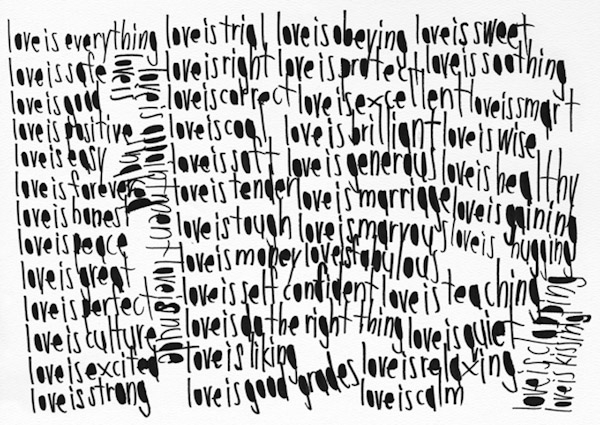 love is everything
love is safe
love is good
love is positive
love is easy
love is forever
love is honest
love is peace
love is great
love is perfect
love is culture
love is excited
love is strong
love is
love is
love is trial
love is right
love is correct
love is cool
love is soft
love is tender
love is tough
love is money
love is self confident
love is do the right thing
love is liking
love is good grades
love is obeying
love is protect
love is excellent
love is brilliant
love is generous
love is marriage
love is marvous
love is fabulous
love is teaching
love is quiet
love is relaxing
love is calm
love is sweet
love is soothing
love is smart
love is wise
love is healthy
love is gaining
love is hugging
love is
love is kissing